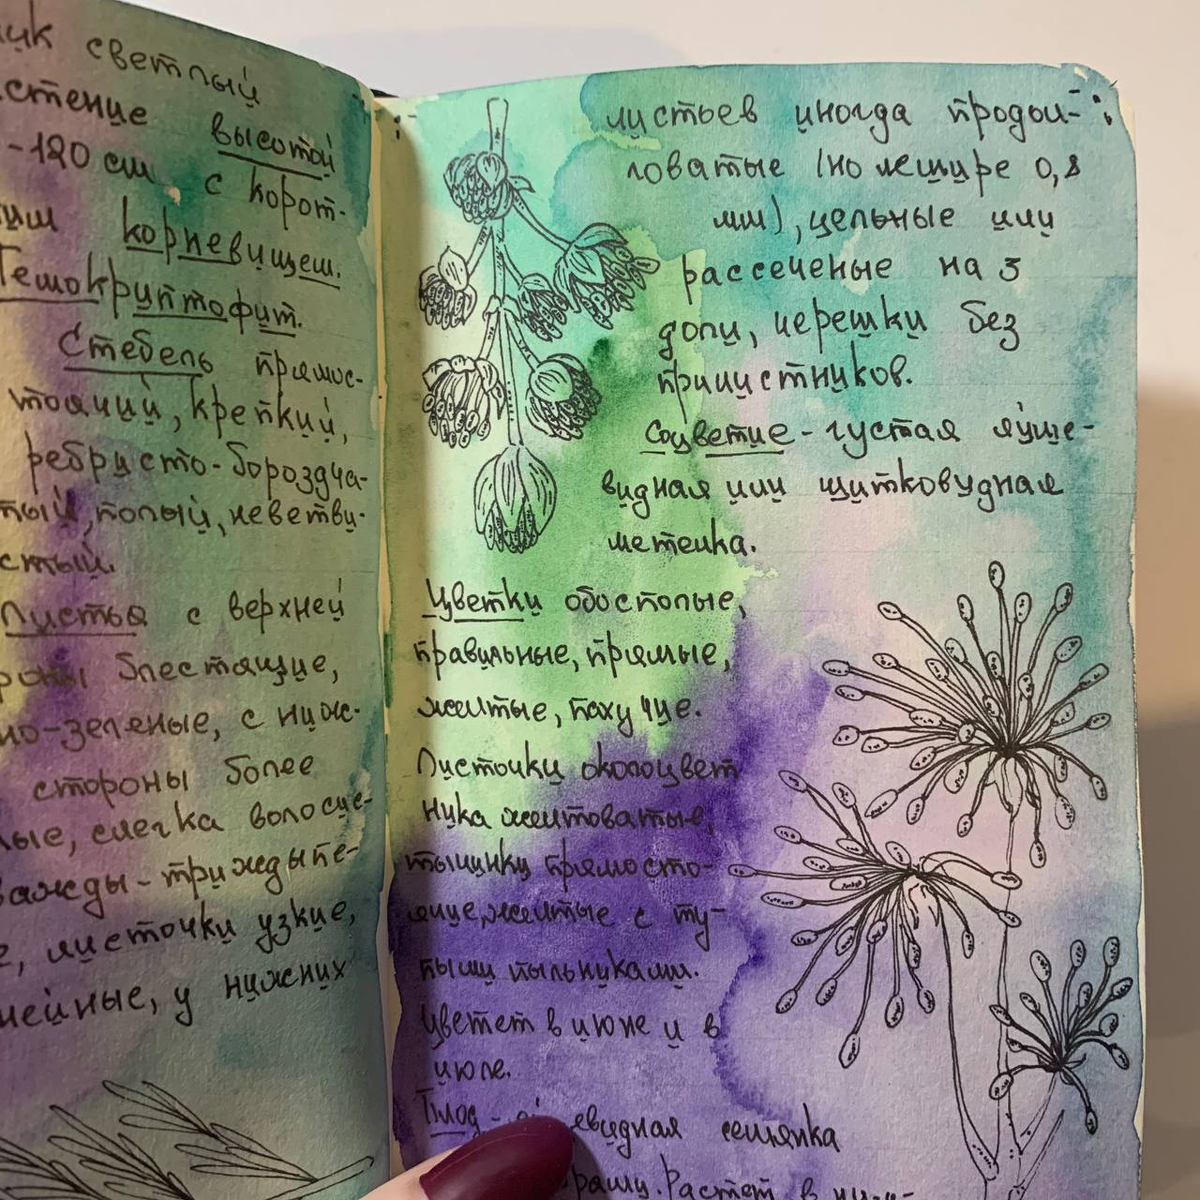 светлый
высотой
-120 см с корот-
корневищем.
Гемокриптофит.
Стебель прямос-
тоячий, крепкий,
ребристо-бороздча-
тый, полый, неветви-
стый.
Листья с верхней
блестящие,
но-зеленые, с ниж-
стороны более
слегка волосис-
важды-трижды пе-
листочки узкие,
нейные, у нижних
листьев иногда продол-
говатые (по шире 0,8
мм), цельные или
рассеченые на 3
доли, черешки без
прилистников.
Соцветие - густая яйце-
видная или щитковудная
метелка.
Цветки обостолые,
правильные, прямые,
желтые, пахучие.
Листочки околоцвет
ника желтоватые,
тычинки прямосто-
ячие, желтые с ту-
пыми пыльниками.
Цветет в июне и в
июле.
Плод - евидная семянка
Растет в